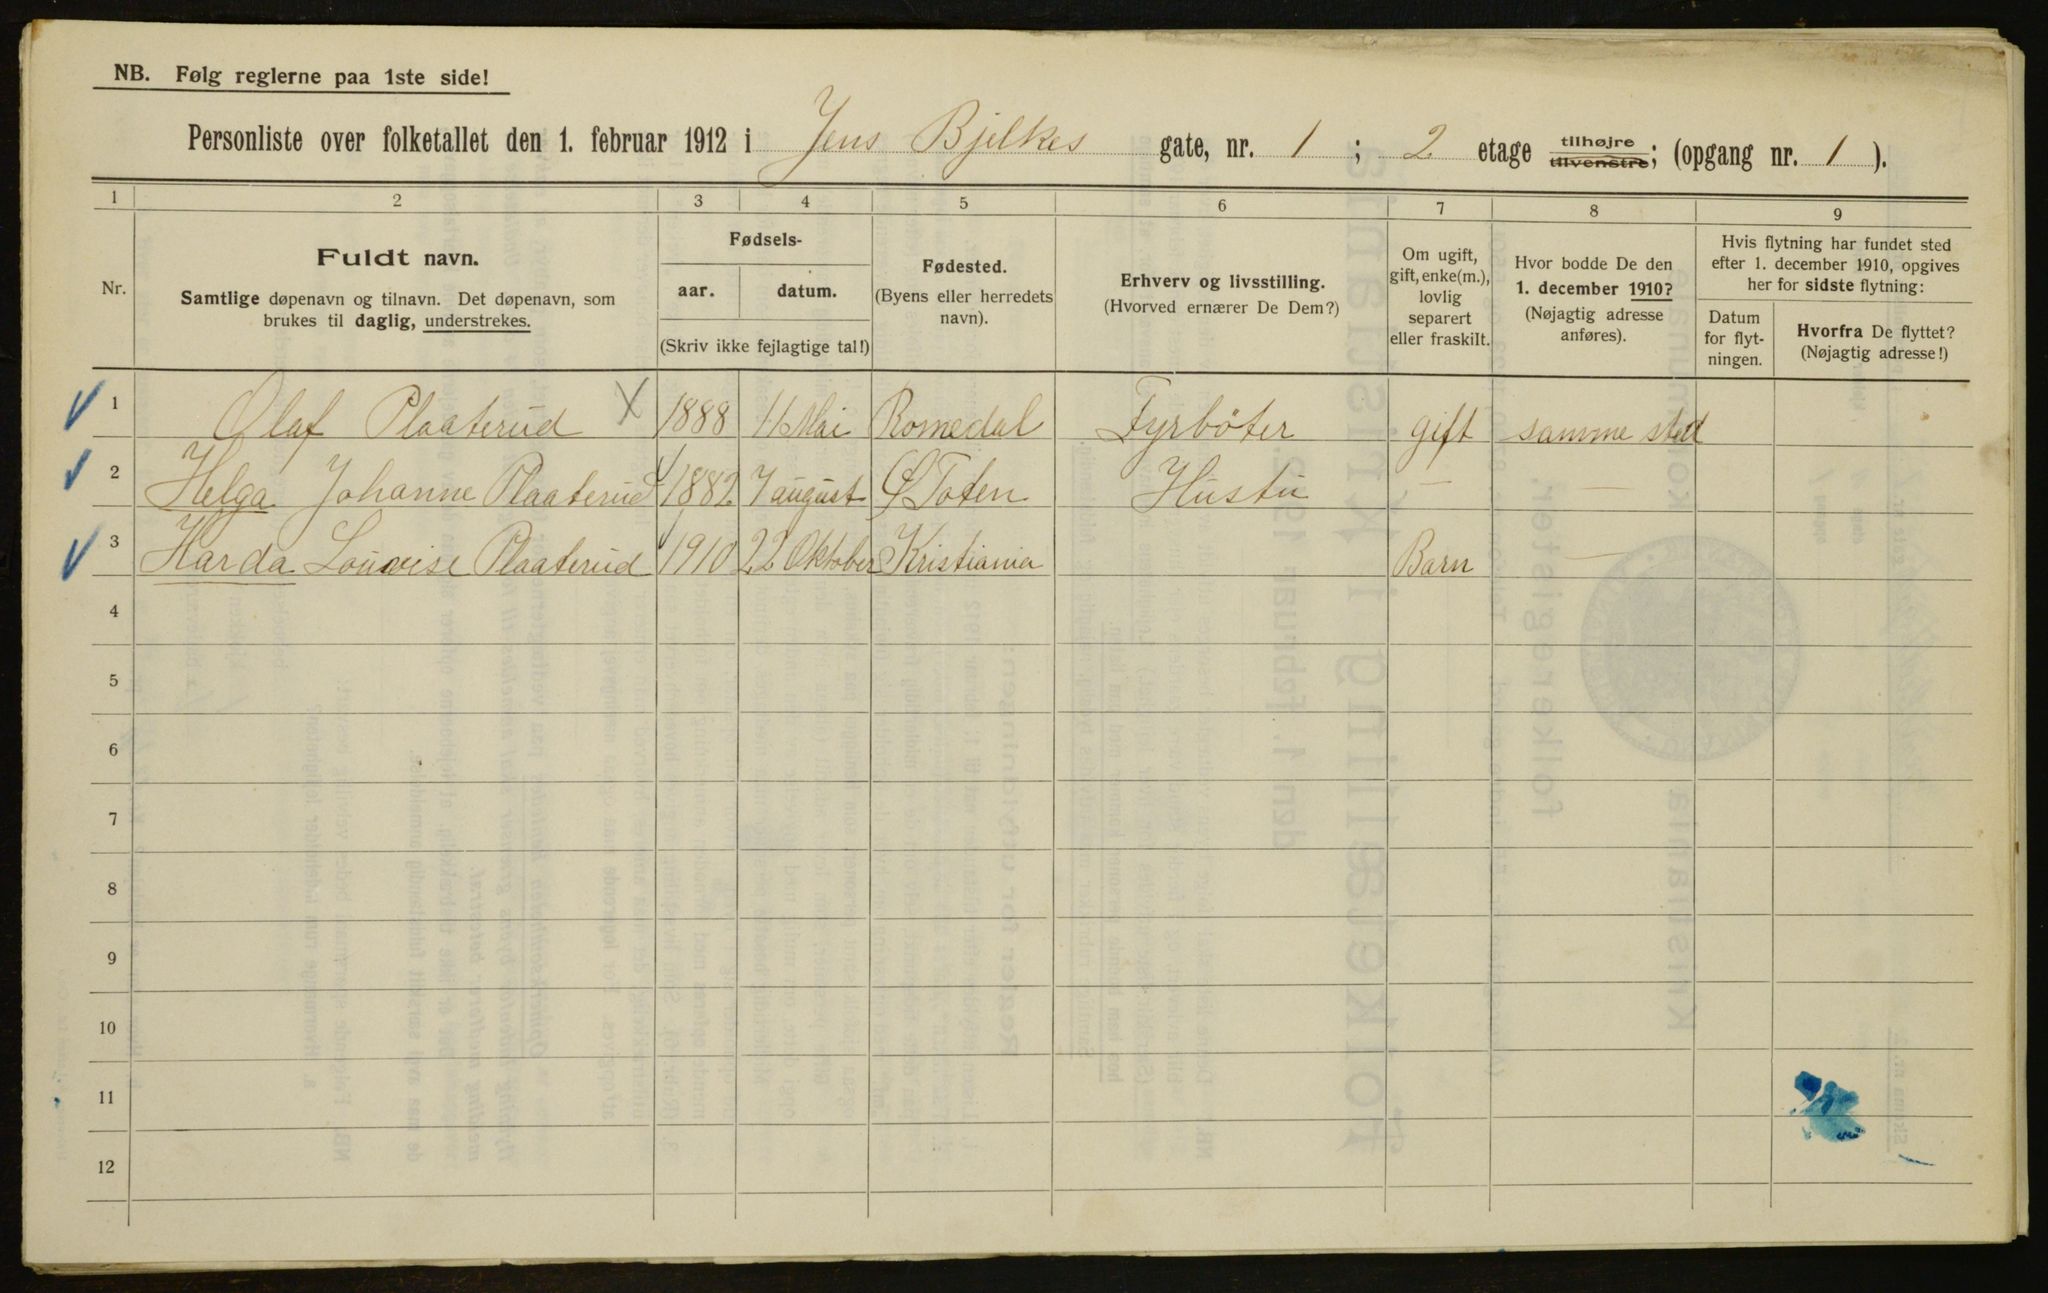 NB. Følg reglerne paa 1ste side!
Personliste over folketallet den 1. februar 1912 i Jens Bjelkes gate, nr. 1 ; 2 etage tilhøjre tilvenstre; (opgang nr. 1 ).
1 2 3 4 5 6 7 8 9
Nr.
Fuldt navn.
Samtlige døpenavn og tilnavn. Det døpenavn, som
brukes til daglig, understrekes.
Fødsels-
aar. datum.
(Skriv ikke fejlagtige tal!)
Fødested.
(Byens eller herredets
navn).
Erhverv og livsstilling.
(Hvorved ernærer De Dem?)
Om ugift,
gift, enke(m.),
lovlig
separert
eller fraskilt.
Hvor bodde De den
1. december 1910?
(Nøjagtig adresse
anføres).
Hvis flytning har fundet sted
efter 1. december 1910, opgives
her for sidste flytning:
Datum
for flyt-
ningen.
Hvorfra De flyttet?
(Nøjagtig adresse!)
1 Olaf Plaaterud X 1888 11 Mai Romedal Fyrböter gift samme sted
2 Helga Johanne Plaaterud 1882 7 august Ø Toten Hustu — —
3 Harda Louise Plaaterud 1910 22 Oktober Kristiania Barn —
4
5
6
7
8
9
10
11
12